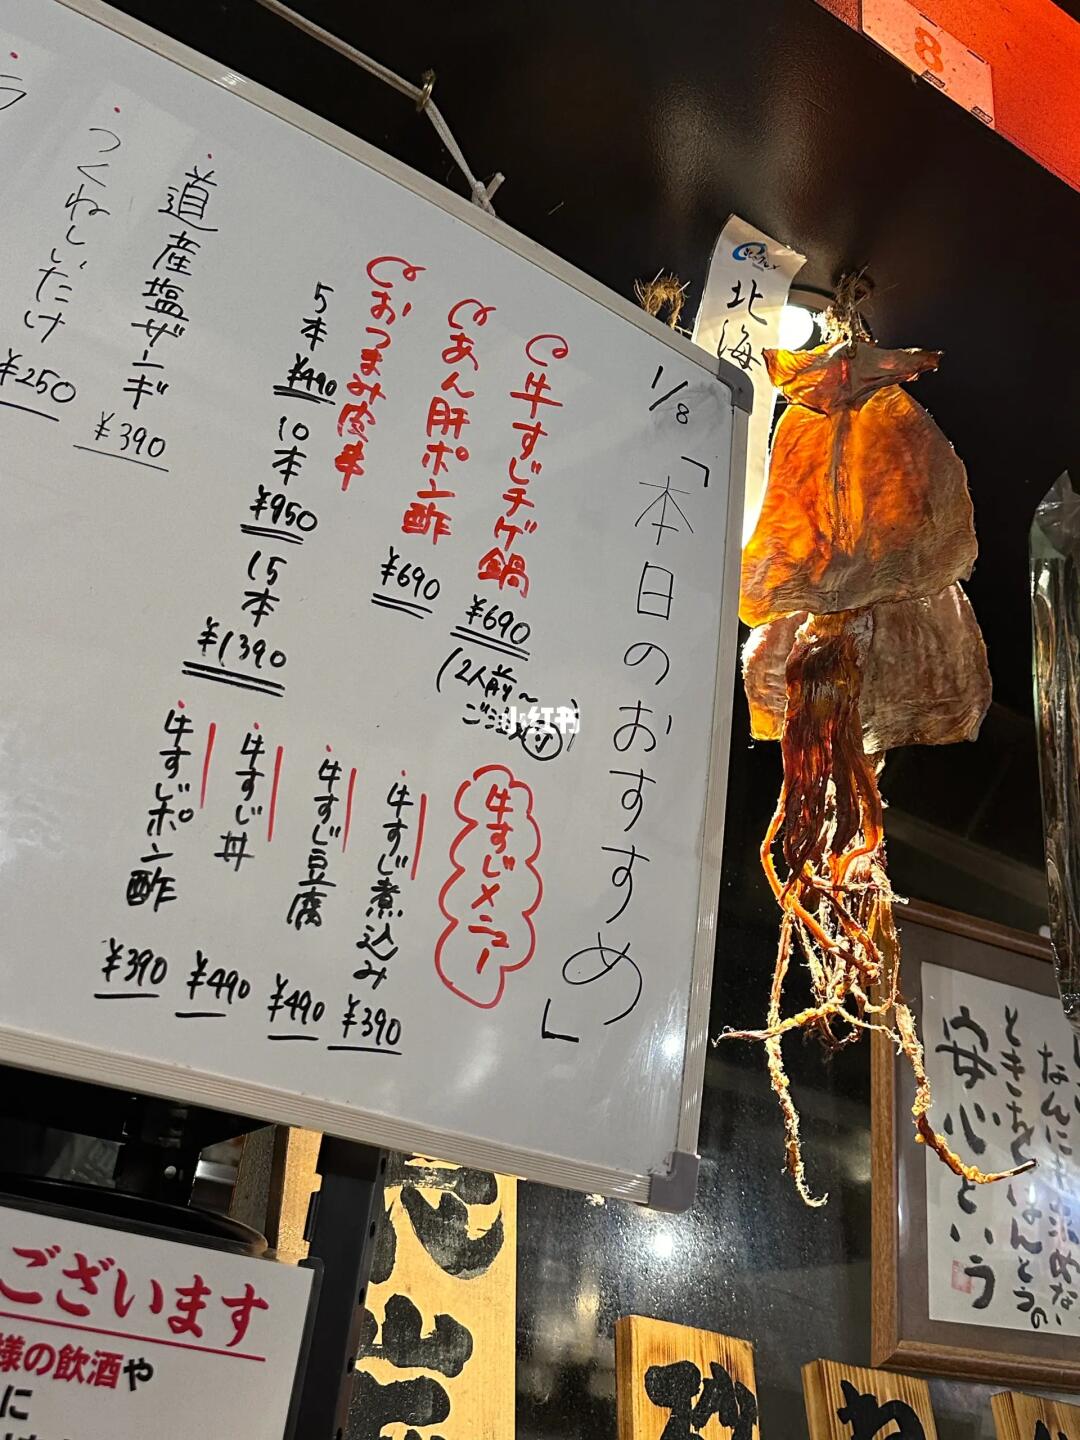 1/8
「本日のおすすめ」
牛すじチゲ鍋
¥690
(2人前〜
あん肝ポン酢
¥690
おつまみ皮串
5本
¥490
10本
¥950
15本
¥1390
牛すじメニュー
牛すじ煮込み
¥390
牛すじ豆腐
¥490
牛すじ丼
¥490
牛すじポン酢
¥390
道産塩ザンギ
¥390
つくねしいたけ
¥250
ラ
小红书
8
北海
なんにも求めない
ときちとほんとうの
安心という
ございます
様の飲酒や
に